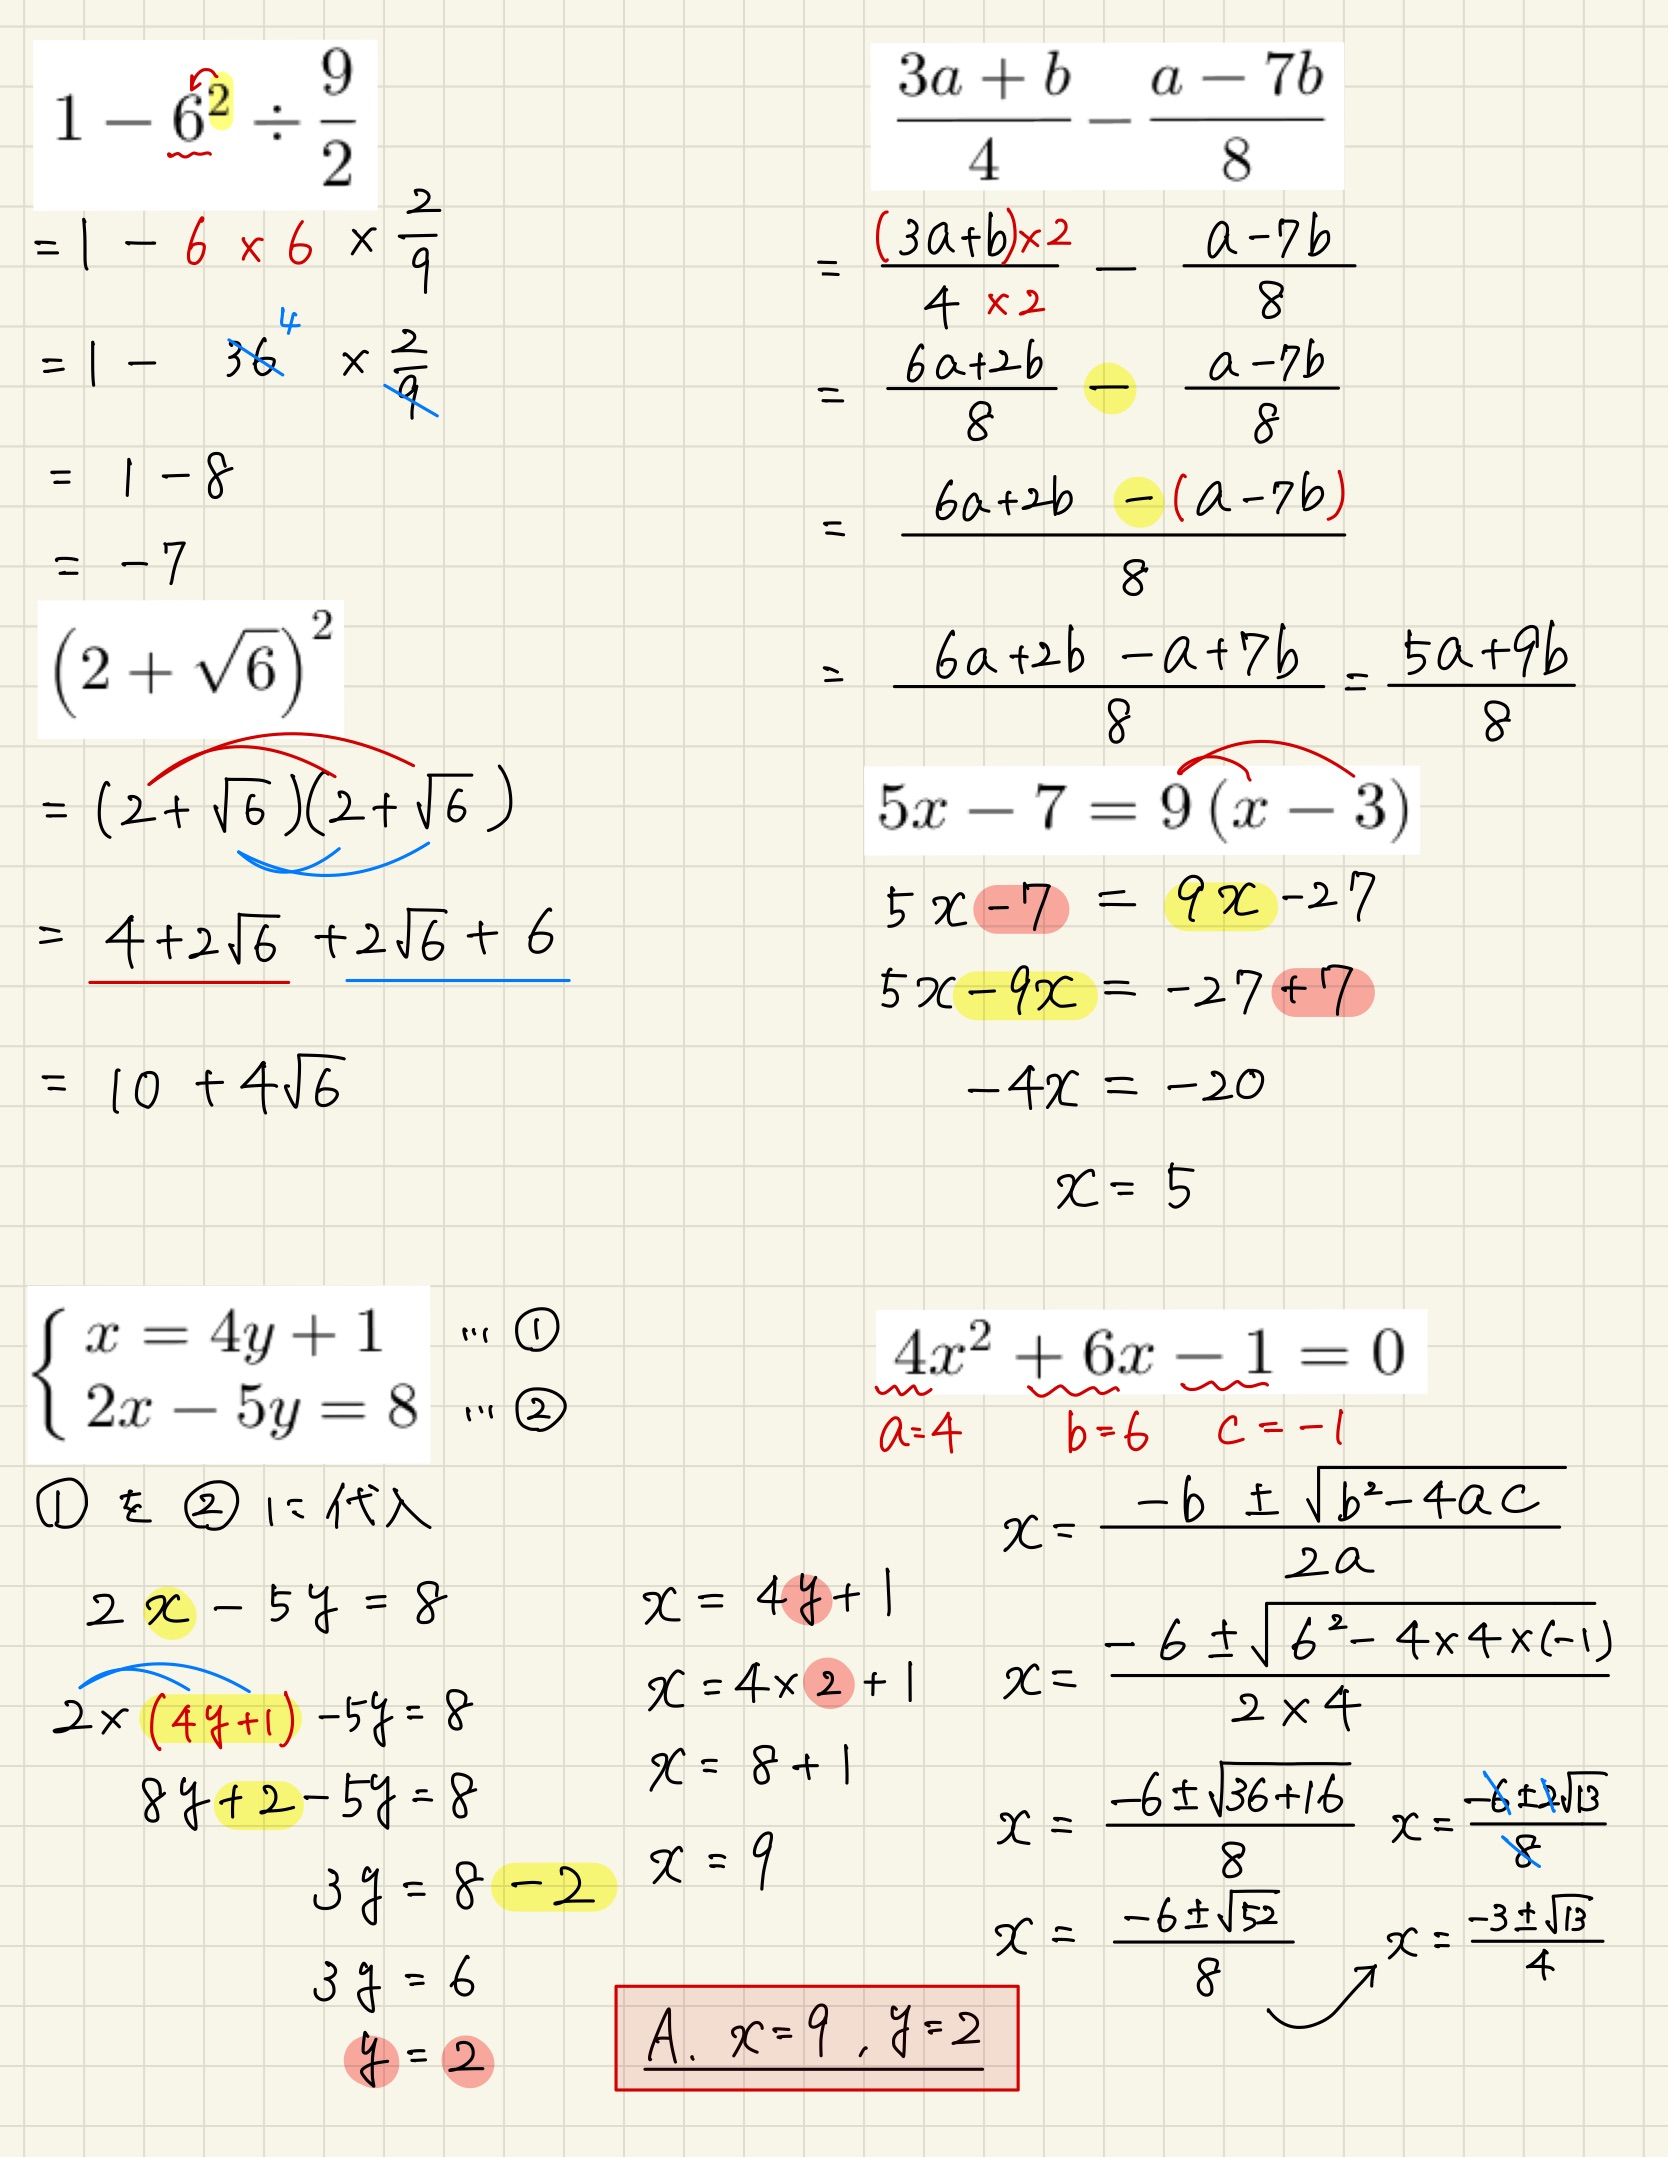 1 − 6² ÷ 9/2
= 1 − 6 × 6 × 2/9
= 1 − 36 4 × 2/9
= 1 − 8
= −7
(2 + √6)²
= (2 + √6)(2 + √6)
= 4 + 2√6 + 2√6 + 6
= 10 + 4√6
(3a + b)/4 − (a − 7b)/8
= (3a+b)×2/4 ×2 − (a−7b)/8
= (6a+2b)/8 − (a−7b)/8
= (6a+2b −(a−7b))/8
= (6a+2b −a+7b)/8 = (5a+9b)/8
5x − 7 = 9 (x − 3)
5x −7 = 9x −27
5x −9x = −27 +7
−4x = −20
x = 5
{ x = 4y + 1 … ①
2x − 5y = 8 … ②
①を②に代入
2x − 5y = 8
2×(4y+1) −5y = 8
8y +2 −5y = 8
3y = 8 −2
3y = 6
y = 2
x = 4y + 1
x = 4×2 + 1
x = 8 + 1
x = 9
A. x=9 , y=2
4x² + 6x − 1 = 0
a=4 b=6 c=−1
x = (−b ± √(b²−4ac))/2a
x = (−6 ± √(6²−4×4×(−1)))/(2×4)
x = (−6±√(36+16))/8
x = (−6±√52)/8
x = (−6±2√13)/8
x = (−3±√13)/4